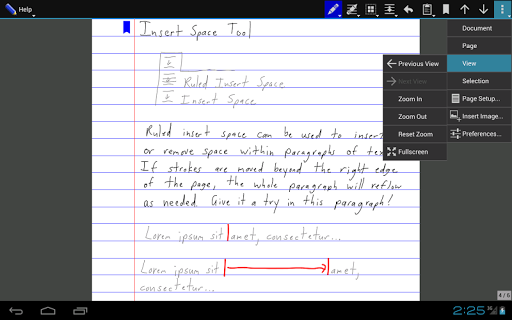 Help
Insert Space Tool
Ruled Insert Space
Insert Space
Ruled insert space can be used to inser
or remove space within paragraphs of tex
If strokes are moved beyond the right edge
of the page, the whole paragraph will reflow
as needed. Give it a try in this paragraph!
Lorem ipsum sit amet, consectetur...
Lorem ipsum sit amet,
consectetur...
Document
Page
View
Selection
Page Setup...
Insert Image...
Preferences...
Previous View
Next View
Zoom In
Zoom Out
Reset Zoom
Fullscreen
4 / 6
2:25